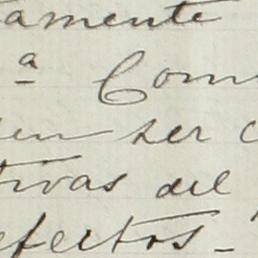 amente
a Com
en ser c
tivas del
efectos_